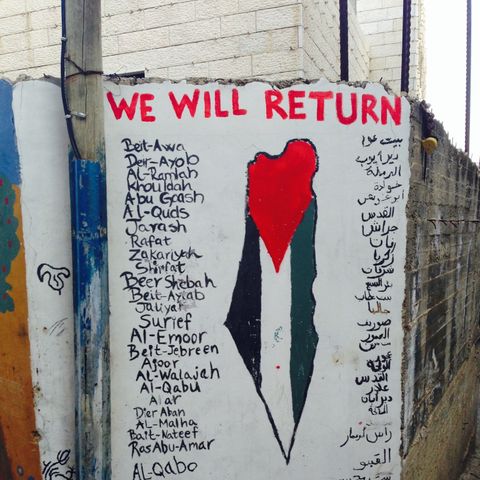 WE WILL RETURN
Beit-Awa
Deir-Ayob
AL-Ramlah
Khouldah
Abu Goash
Al-Quds
Jarash
Rafat
Zakariyah
Shirfat
Beer Shebah
Beit-Aytab
Jaliyah
Surief
Al-Emoor
Beit-Jebreen
Ajoor
AL-Walajah
Al-Qabu
Alar
Dier Aban
AL-Malha
Bait-Nateef
Ras Abu-Amar
AL-Qabo
بيت عوا
دير أيوب
الرملة
خولدة
أبو غوش
القدس
جراش
رافات
زكريا
شرفات
بئر السبع
بيت عطاب
صوريف
القدس
علار
دير أبان
المالحة
راس أبو عمار
القبو